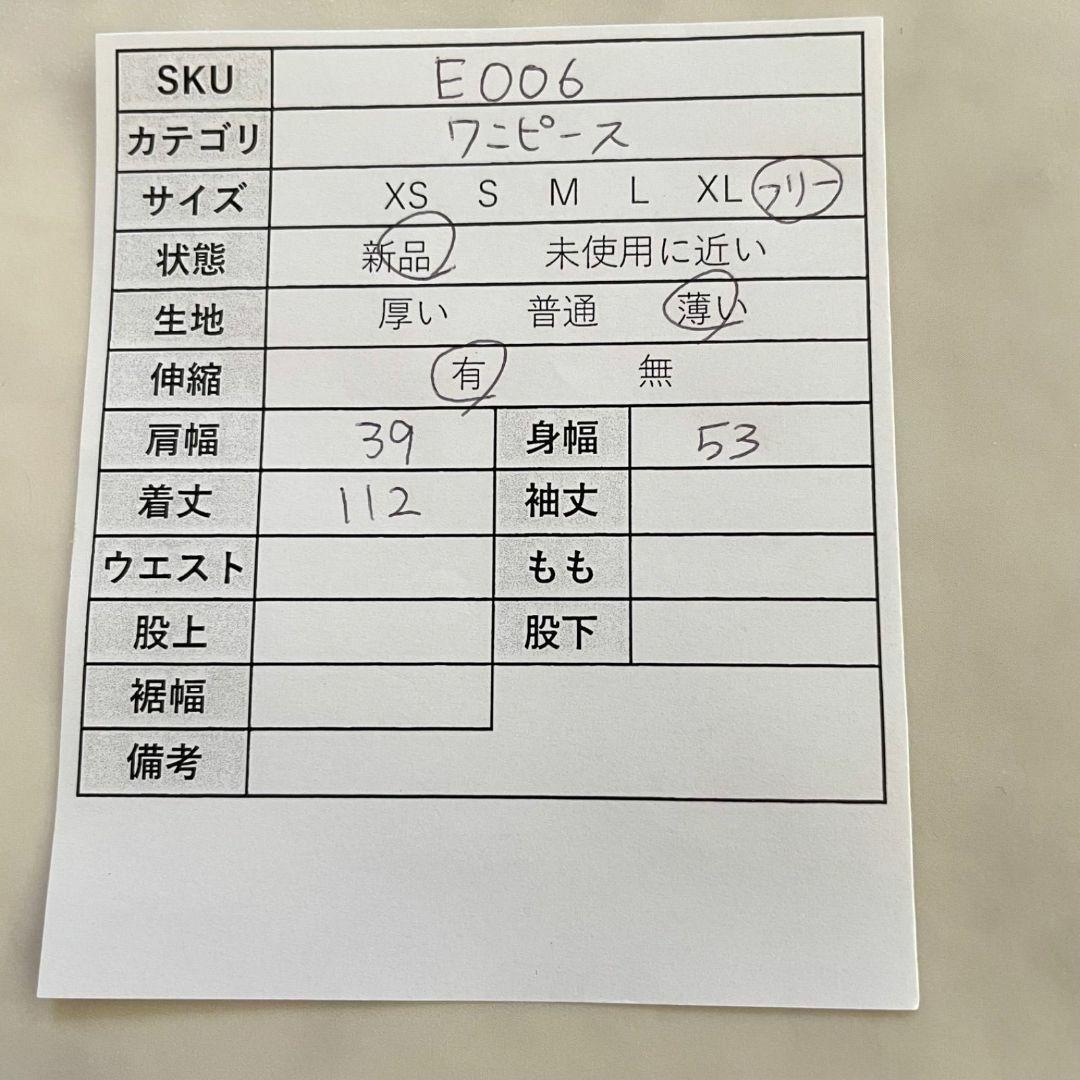 SKU E006
カテゴリ ワニピース
サイズ XS S M L XL フリー
状態 新品 未使用に近い
生地 厚い 普通 薄い
伸縮 有 無
肩幅 39 身幅 53
着丈 112 袖丈
ウエスト もも
股上 股下
裾幅
備考